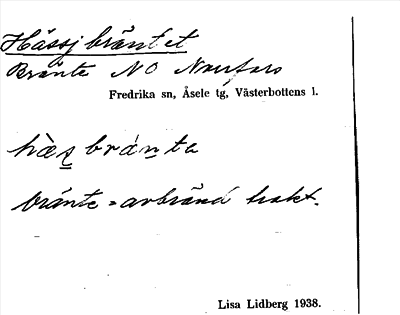 Hässjbräntet
Bränte NO
Fredrika sn, Åsele tg, Västerbottens l.
hὰs̠bráṉta
bränte = avbränd trakt.
Lisa Lidberg 1938.